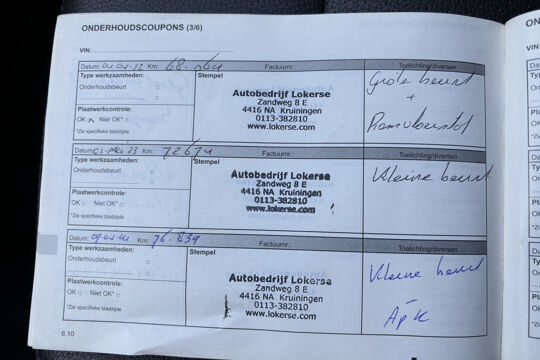 ONDERHOUDSCOUPONS (3/6)
VIN:
Datum: 04-04-22 Km: 68.064 Factuurnr.: Toelichting/diversen
Type werkzaamheden:
Onderhoudsbeurt
Plaatwerkcontrole:
OK Niet OK*
*Zie specifieke bladzijde
Stempel
Autobedrijf Lokerse
Zandweg 8 E
4416 NA Kruiningen
0113-382810
www.lokerse.com
Grote beurt
+
Remvloeistof
Datum: Km: 72674 Factuurnr.: Toelichting/diversen
Type werkzaamheden:
Onderhoudsbeurt
Plaatwerkcontrole:
OK Niet OK*
*Zie specifieke bladzijde
Stempel
Autobedrijf Lokerse
Zandweg 8 E
4416 NA Kruiningen
0113-382810
www.lokerse.com
Kleine beurt
Datum: Km: 76.839 Factuurnr.: Toelichting/diversen
Type werkzaamheden:
Onderhoudsbeurt
Plaatwerkcontrole:
OK Niet OK*
*Zie specifieke bladzijde
Stempel
Autobedrijf Lokerse
Zandweg 8 E
4416 NA Kruiningen
0113-382810
www.lokerse.com
Kleine beurt
APK
6.10